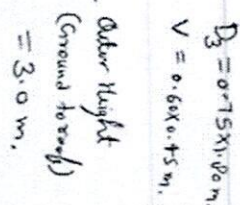 D3 = 0.75X1.80m
V = 0.60X0.45m.
Outer Height
(Ground to roof)
= 3.0 m.